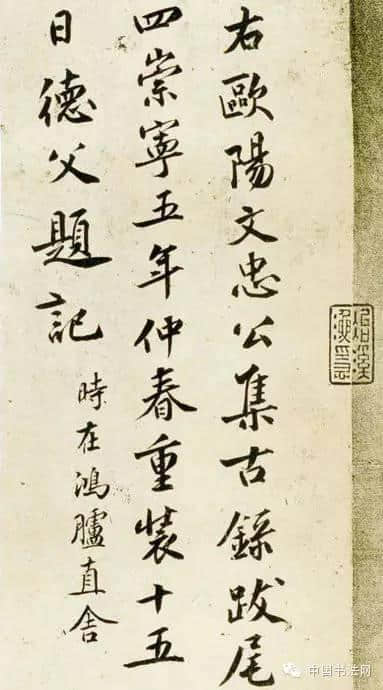 右歐陽文忠公集古錄跋尾
四崇寧五年仲春重裝十五
日德父題記
時在鴻臚直舍
中国书法网